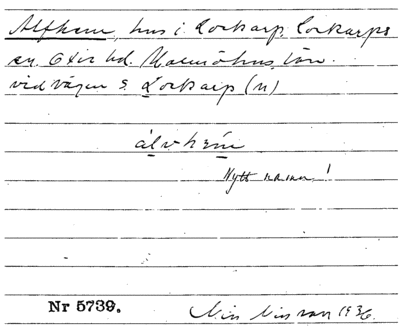 Alfhem, hus i Lockarp, Lockarps
sn. Oxie hd. Malmöhus län.
vid vägen S. Lockarp (n)
álvhem
Nytt namn!
Nr 5739.
Nils Nilsson 1936.